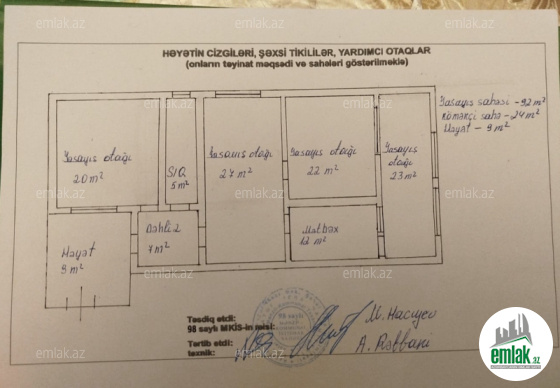 HƏYƏTİN CİZGİLƏRİ, ŞƏXSİ TİKİLİLƏR, YARDIMCI OTAQLAR
(onların təyinat məqsədi və sahələri göstərilməklə)
Yaşayış sahəsi - 92 m²
Köməkçi sahə - 24 m²
Həyət - 9 m²
Yaşayış otağı
20 m²
S/Q
5 m²
Yaşayış otağı
27 m²
Yaşayış otağı
22 m²
Yaşayış
otağı
23 m²
Dəhliz
7 m²
Mətbəx
12 m²
Həyət
9 m²
Təsdiq etdi:
98 saylı MKİS-in rəisi:
M. Hacıyev
Tərtib etdi:
texnik:
A. Rəbbani
emlak.az
emlak.az
emlak.az
emlak.az
emlak.az
emlak.az
emlak.az
emlak.az
emlak.az
emlak.az